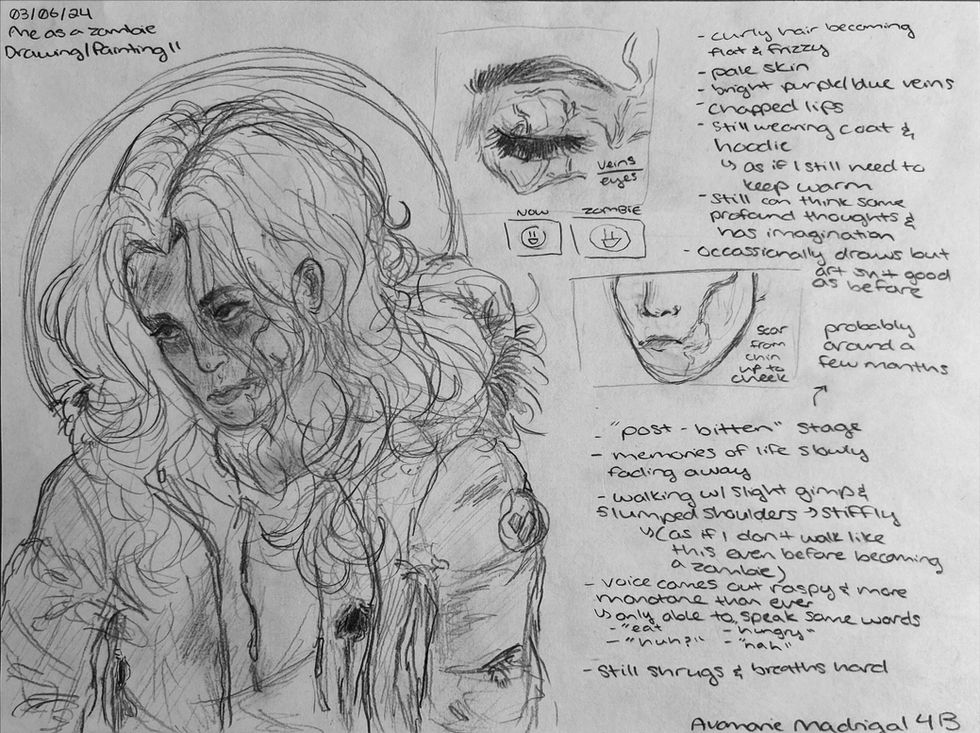 03/06/24
Me as a zombie
Drawing/Painting II
- curly hair becoming
flat & frizzy
- pale skin
- bright purple/blue veins
- chapped lips
- still wearing coat &
hoodie
↳ as if I still need to
keep warm
- still can think some
profound thoughts &
has imagination
- occassionally draws but
art isnt good
as before
veins
eyes
NOW
ZOMBIE
scar
from
chin
up to
cheek
probably
around a
few months
- "post-bitten" stage
- memories of life slowly
fading away
- walking w/ slight gimp &
slumped shoulders → stiffly
↳ (as if I don't walk like
this even before becoming
a zombie)
- voice comes out raspy & more
monotone than ever
↳ only able to speak some words
- "eat - hungry"
- "huh?" - "nah"
- still shrugs & breaths hard
Avamarie Madrigal 4B